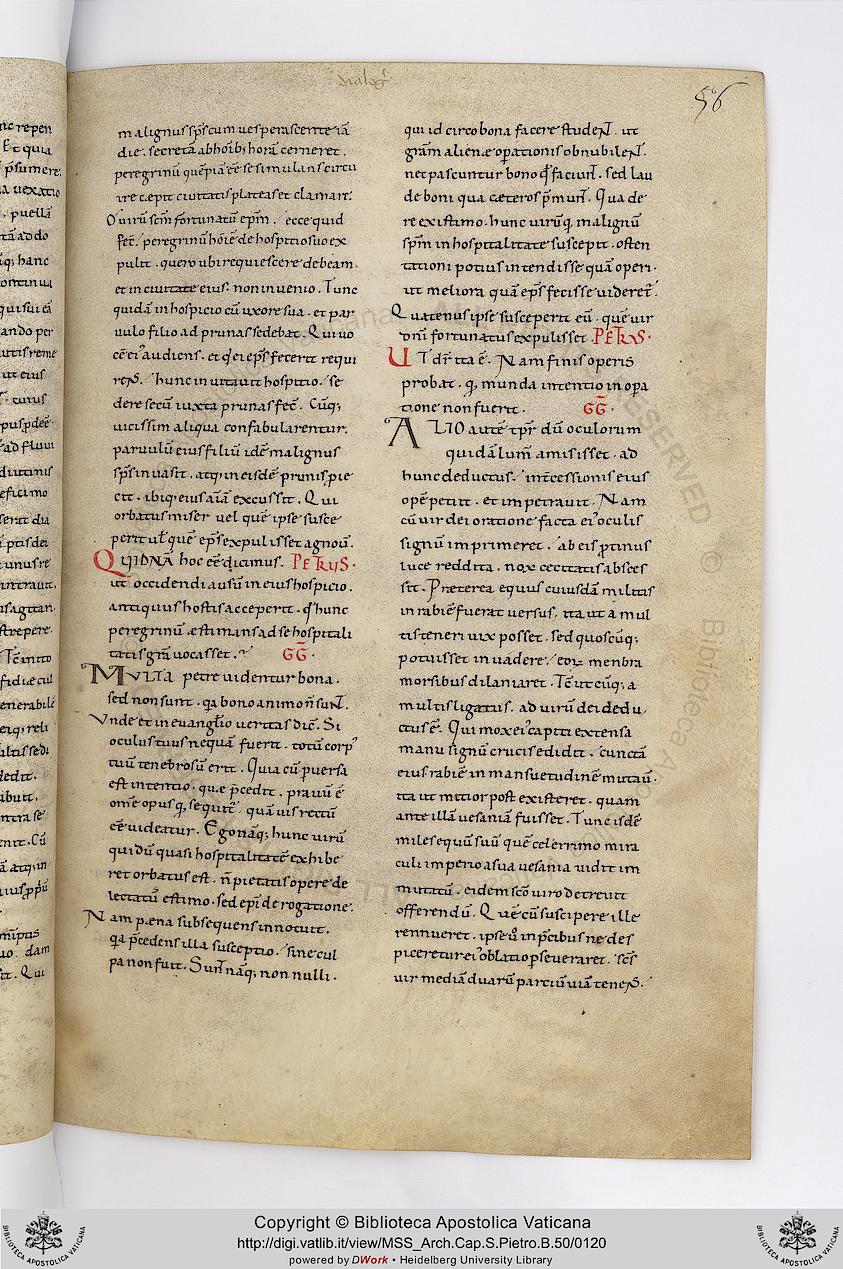 dialog̃
56
malignus sp̃s cum uesperascente iã
die. secretã ab hoib; horã cerneret.
peregrinũ quẽpiã ẽe se simulans circu
ire cepit ciuitatis plateas et clamare.
O uirũ scm̃ fortunatũ ep̃m. ecce quid
fec̃. peregrinũ hoĩe de hospitio suo ex
pulit. quero ubi requiescere debeam.
et in ciuitate eius. non inuenio. Tunc
quidã in hospicio cũ uxore sua. et par
uulo filio ad prunas sedebat. Qui uo
cẽ ei' audiens. et qd ei ep̃s fecerit requi
rens. hunc inuitauit hospitio. se
dere secũ iuxta prunas fec̃. Cũq;
uicissim aliqua confabularentur.
paruulũ eius filiũ idẽ malignus
sp̃s inuasit. atq; in eisdẽ prunis pie
cit. ibiq; eius aĩa excussit. Qui
orbatus miser uel quẽ ipse susce
perit ul̃ quẽ ep̃s expulisset agnouit.
QVIDNÃ hoc eẽ dicimus. PETRUS.
ut occidendi ausũ in eius hospicio.
antiquus hostis acceperit. q̃ hunc
peregrinũ. estimans ad se hospitali
tatis gr̃a uocasset. GG̃.
MVLTA petre uidentur bona.
sed non sunt. q̃a bono animo ñ sunt.
Vnde et in euangl̃io ueritas dic̃. Si
oculus tuus nequã fuerit. totũ corp'
tuũ tenebrosũ erit. Quia cũ puersa
est intentio. que p̃cedit. prauũ ẽ
om̃e opus q, sequit̃. quãuis rectũ
eẽ uideatur. Ego naq; hunc uirũ
qui dũ quasi hospitalitatẽ exhibe
ret orbatus est. ñ pietatis opere de
lectatũ estimo. sed ep̃i derogatione.
Nam pena subsequens innotuit.
q̃a p̃cedens illa susceptio. sine cul
pa non fuit. Sunt naq; non nulli.
qui idcirco bona facere student. ut
gr̃am aliene opationis obnubilent.
nec pascuntur bono qd̃ faciunt. sed lau
de boni qua ceteros p̃munt. Qua de
re existimo. hunc uirũ q, malignũ
sp̃m in hospitalitate suscepit. osten
tationi potius intendisse quã operi.
ut meliora quã ep̃s fecisse uideret̃.
Quatenus ipse susceperit eũ. quẽ uir
dñi fortunatus expulisset. PETRUS.
UT dr̃ ita ẽ. Nam finis operis
probat. q, munda intentio in opa
tione non fuerit. GG̃.
ALIO autẽ tp̃r dũ oculorum
quidã lum̃ amisisset. ad
hunc deductus. int̃cessionis eius
opẽ petiit. et impetrauit. Nam
cũ uir dei oratione facta ei' oculis
signũ imprimeret. ab eis p̃tinus
luce reddita. nox cecitatis absces
sit. Preterea equus cuiusdã militis
in rabiẽ fuerat uersus. ita ut a mul
tis teneri uix posset. sed quoscũq;
potuisset inuadere. eoꝝ menbra
morsibus dilaniaret. Tc̃ utcũq; a
multis ligatus. ad uirũ dei dedu
ctus ẽ. Qui mox ei' capiti extensa
manu signũ crucis edidit. cunctã
eius rabiẽ in mansuetudinẽ mutauit.
ita ut mitior post existeret. quam
ante illã uesaniã fuisset. Tunc isdẽ
miles equũ suũ quẽ celerrimo mira
culi imperio a sua uesania uidit im
mutatũ. eidem sc̃o uiro decreuit
offerendũ. Quẽ cũ suscipere ille
rennueret. ipse ũ in p̃cibus ne des
piceretur ei' oblatio pseueraret. sc̃s
uir mediã duarũ partiũ uiã tenens.
Copyright © Biblioteca Apostolica Vaticana
http://digi.vatlib.it/view/MSS_Arch.Cap.S.Pietro.B.50/0120
powered by DWork • Heidelberg University Library